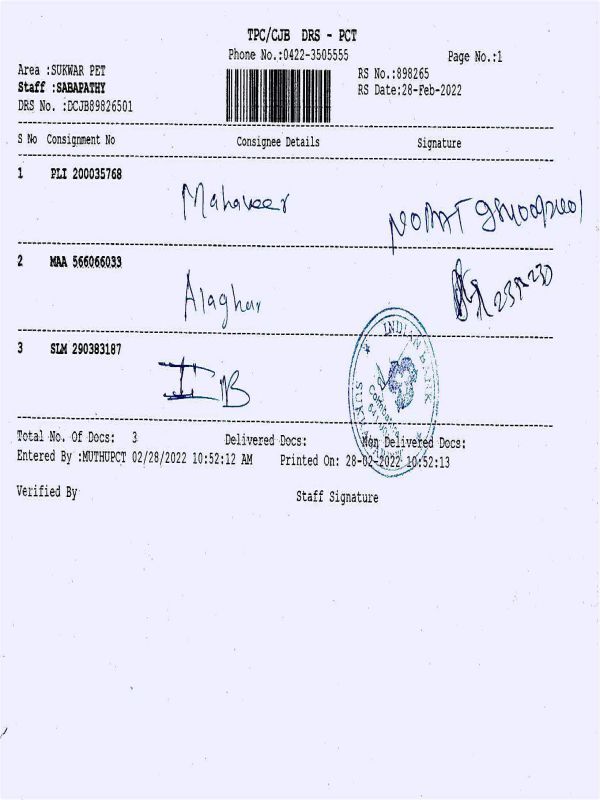 TPC/CJB DRS - PCT
Phone No.:0422-3505555
Page No.:1
Area :SUKWAR PET
RS No.:898265
Staff :SABAPATHY
RS Date:28-Feb-2022
DRS No. :DCJB89826501
S No Consignment No Consignee Details Signature
1 PLI 200035768
Mahaveer
2 MAA 566066033
Alaghar
3 SLM 290383187
IB
INDIAN BANK
Total No. Of Docs: 3 Delivered Docs: Non Delivered Docs:
Entered By :MUTHUPCT 02/28/2022 10:52:12 AM Printed On: 28-02-2022 10:52:13
Verified By Staff Signature